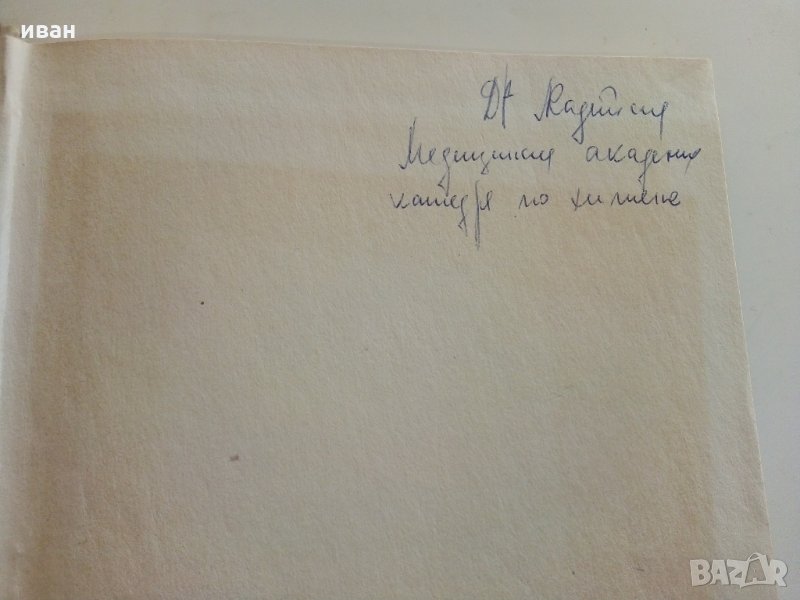 иван
Др
Медицинска академия
катедра по хигиена
BAZAR